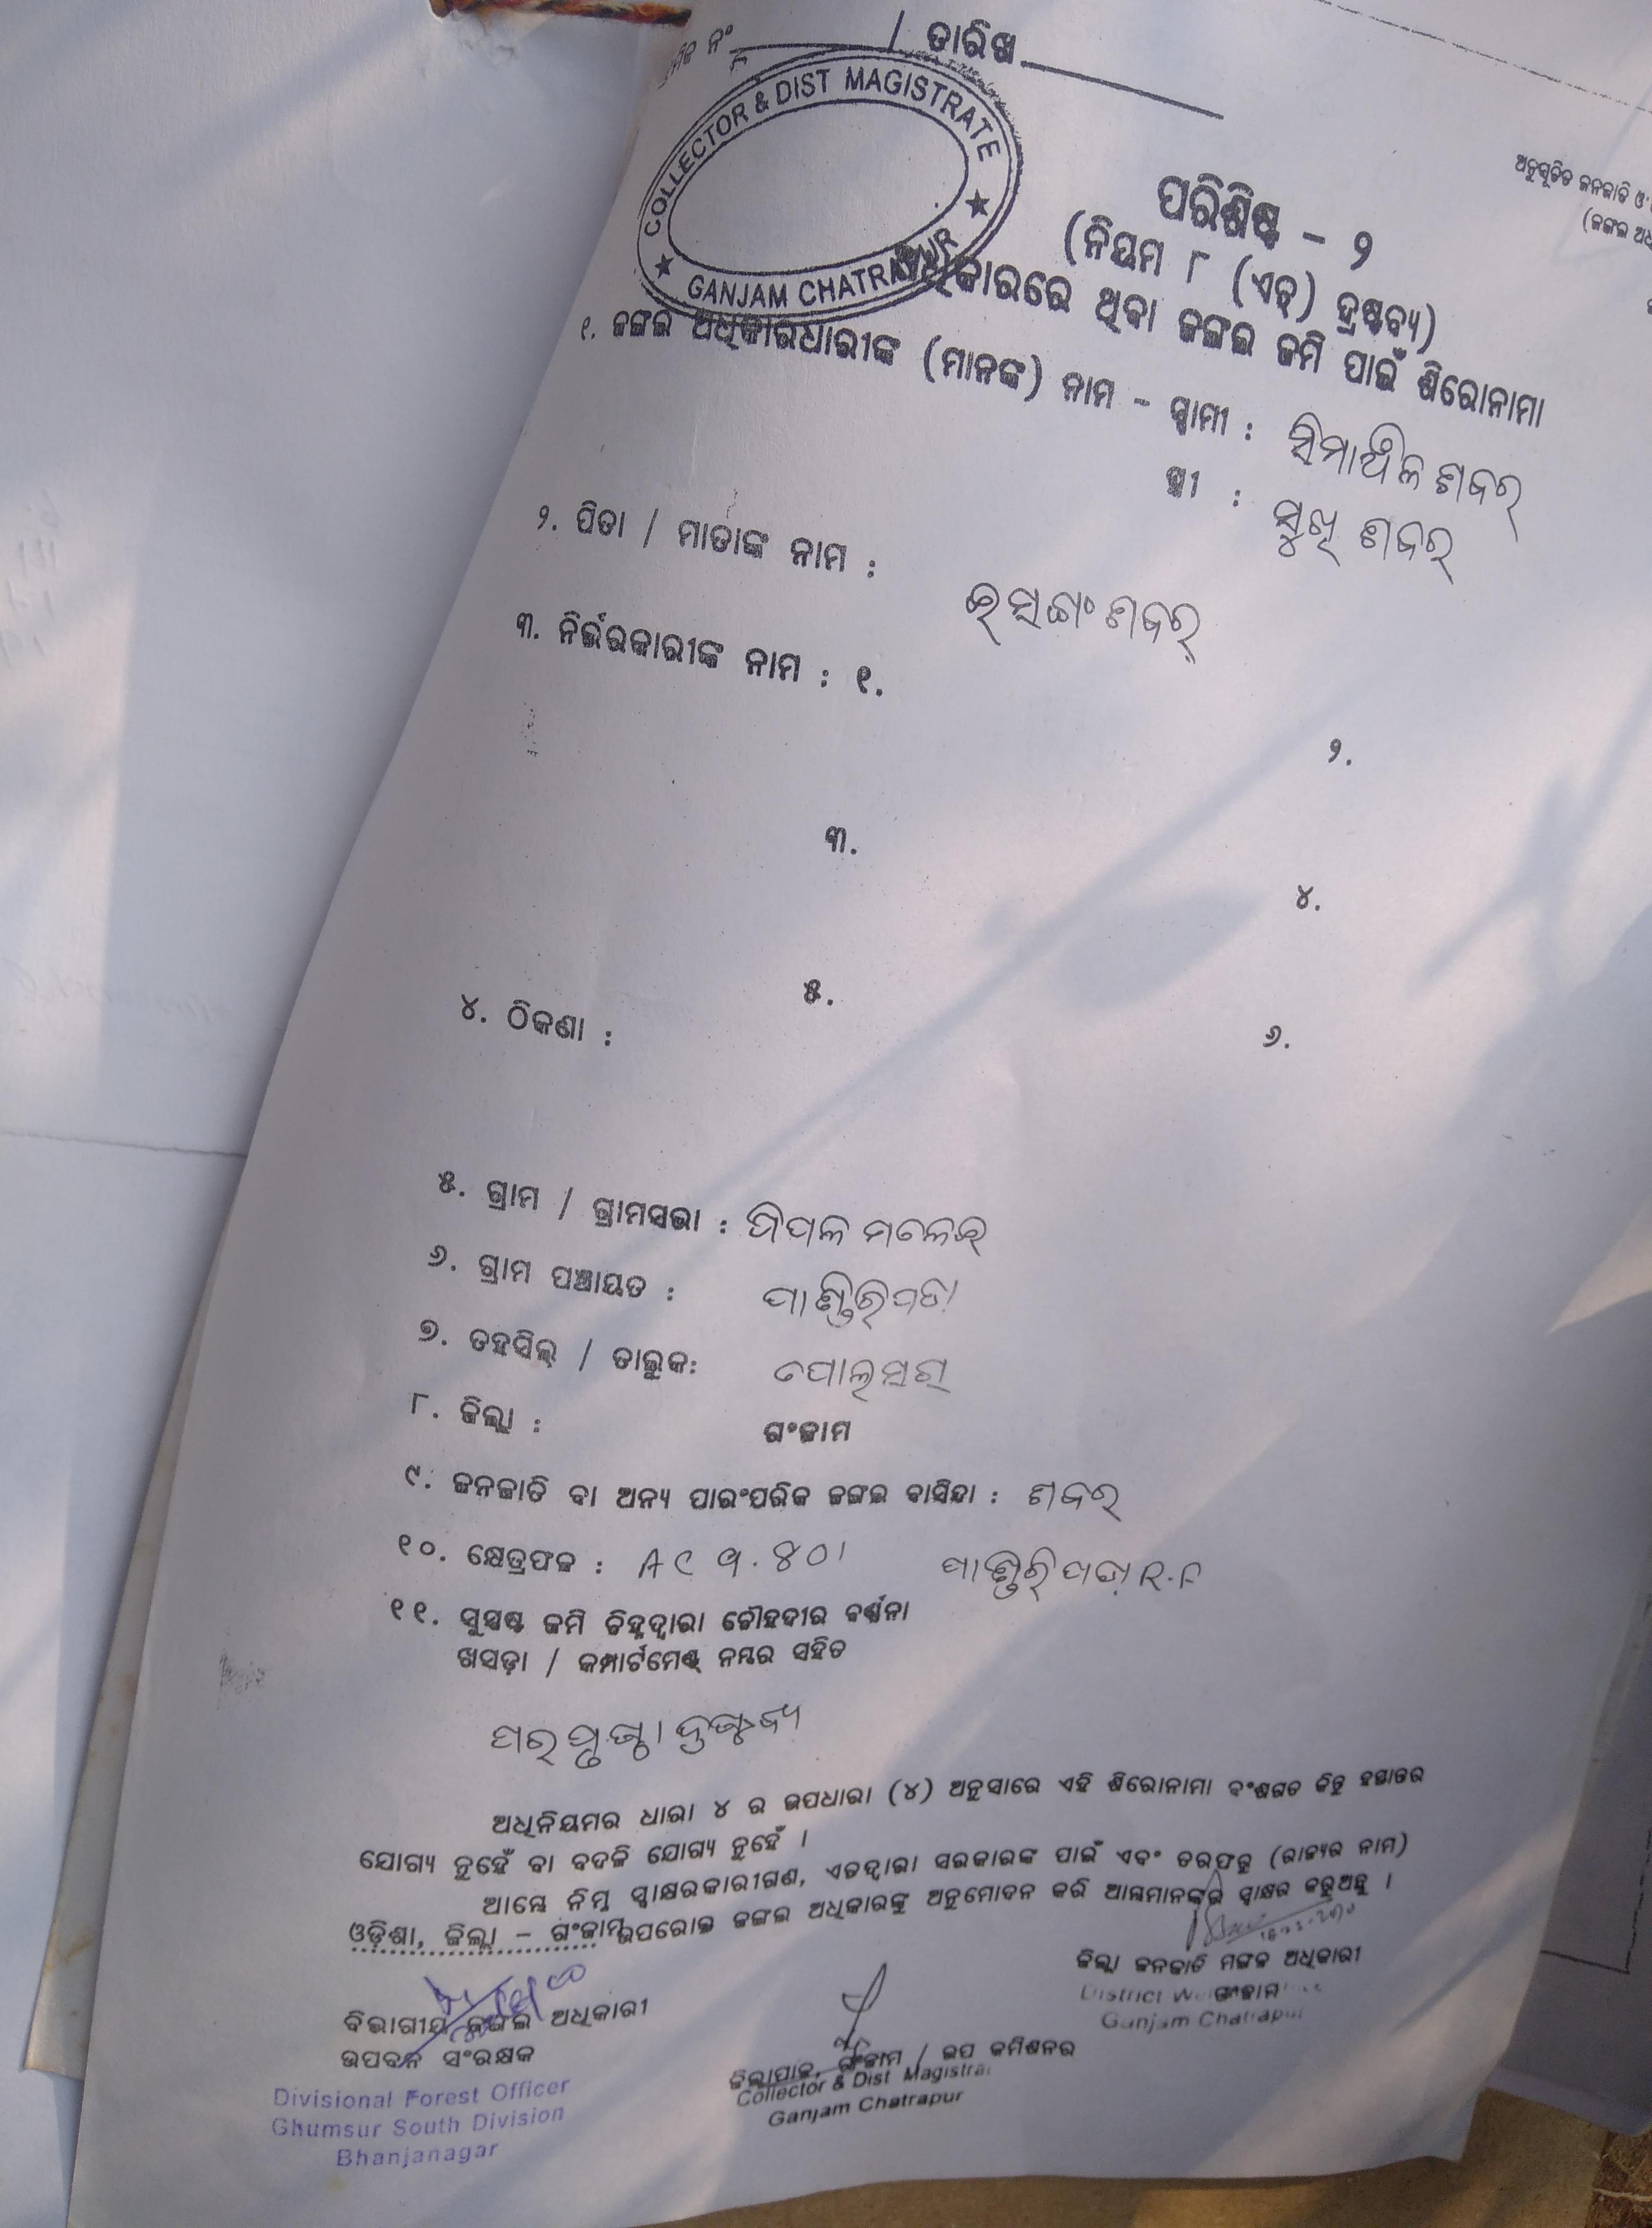 ନଂ / ତାରିଖ
COLLECTOR & DIST MAGISTRATE
★ GANJAM CHATRAPUR ★
ଅନୁସୂଚିତ ଜନଜାତି ଓ
(ଜଙ୍ଗଲ
ପରିଶିଷ୍ଟ – ୨
(ନିୟମ ୮ (ଏଚ୍) ଦ୍ରଷ୍ଟବ୍ୟ)
ଅଧିକାରରେ ଥିବା ଜଙ୍ଗଲ ଜମି ପାଇଁ ଶିରୋନାମା
୧. ଜଙ୍ଗଲ ଅଧିକାରଧାରୀଙ୍କ (ମାନଙ୍କ) ନାମ – ସ୍ଵାମୀ : ଶବର୍
ସ୍ତ୍ରୀ : ଶବର୍
୨. ପିତା / ମାତାଙ୍କ ନାମ : ଶବର୍
୩. ନିର୍ଭରକାରୀଙ୍କ ନାମ : ୧.
୨.
୩.
୪.
୫.
୬.
୪. ଠିକଣା :
୫. ଗ୍ରାମ / ଗ୍ରାମସଭା :
୬. ଗ୍ରାମ ପଞ୍ଚାୟତ :
୭. ତହସିଲ୍ / ତାଲୁକ: ପୋଲସରା
୮. ଜିଲ୍ଲା : ଗଂଜାମ
୯. ଜନଜାତି ବା ଅନ୍ୟ ପାରଂପରିକ ଜଙ୍ଗଲ ବାସିନ୍ଦା : ଶବର
୧୦. କ୍ଷେତ୍ରଫଳ : R.F
୧୧. ସୁସ୍ପଷ୍ଟ ଜମି ଚିହ୍ନଦ୍ୱାରା ଚୌହଦୀର ବର୍ଣ୍ଣନା
ଖସଡ଼ା / କମ୍ପାର୍ଟମେଣ୍ଟ୍ ନମ୍ବର ସହିତ
ଅଧିନିୟମର ଧାରା ୪ ର ଉପଧାରା (୪) ଅନୁସାରେ ଏହି ଶିରୋନାମା ବଂଶଗତ କିନ୍ତୁ ହସ୍ତାନ୍ତର
ଯୋଗ୍ୟ ନୁହେଁ ବା ବଦଳି ଯୋଗ୍ୟ ନୁହେଁ ।
ଆମ୍ଭେ ନିମ୍ନ ସ୍ୱାକ୍ଷରକାରୀଗଣ, ଏତଦ୍ୱାରା ସରକାରଙ୍କ ପାଇଁ ଏବଂ ତରଫରୁ (ରାଜ୍ୟର ନାମ)
ଓଡ଼ିଶା, ଜିଲ୍ଲା – ଗଂଜାମ ଉପରୋକ୍ତ ଜଙ୍ଗଲ ଅଧିକାରଙ୍କୁ ଅନୁମୋଦନ କରି ଆମ୍ଭମାନଙ୍କର ସ୍ୱାକ୍ଷର କରୁଅଛୁ ।
ବିଭାଗୀୟ ଜଙ୍ଗଲ ଅଧିକାରୀ
ଉପବନ ସଂରକ୍ଷକ
Divisional Forest Officer
Ghumsur South Division
Bhanjanagar
ଜିଲ୍ଲାପାଳ, ଗଂଜାମ / ଉପ କମିଶନର
Collector & Dist Magistra
Ganjam Chatrapur
ଜିଲ୍ଲା ଜନଜାତି ମଙ୍ଗଳ ଅଧିକାରୀ
ଗଂଜାମ
District
Ganjam Chatrapur